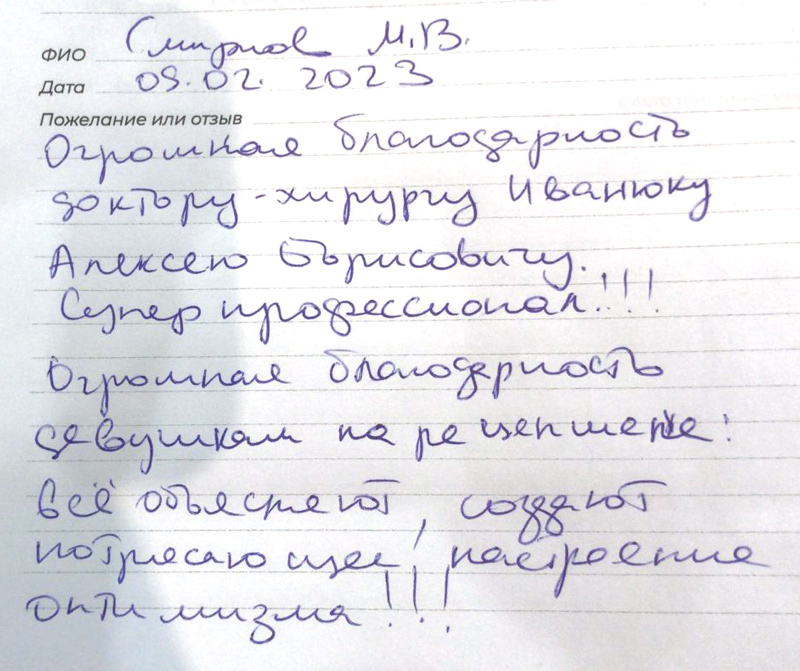 ФИО Смирнов М.В.
Дата 09.02.2023
Пожелание или отзыв
Огромная благодарность
доктору-хирургу Иванюку
Алексею Борисовичу.
Супер профессионал!!!
Огромная благодарность
девушкам на рецепшене:
всё объясняют, создают
потрясающее настроение
оптимизма!!!